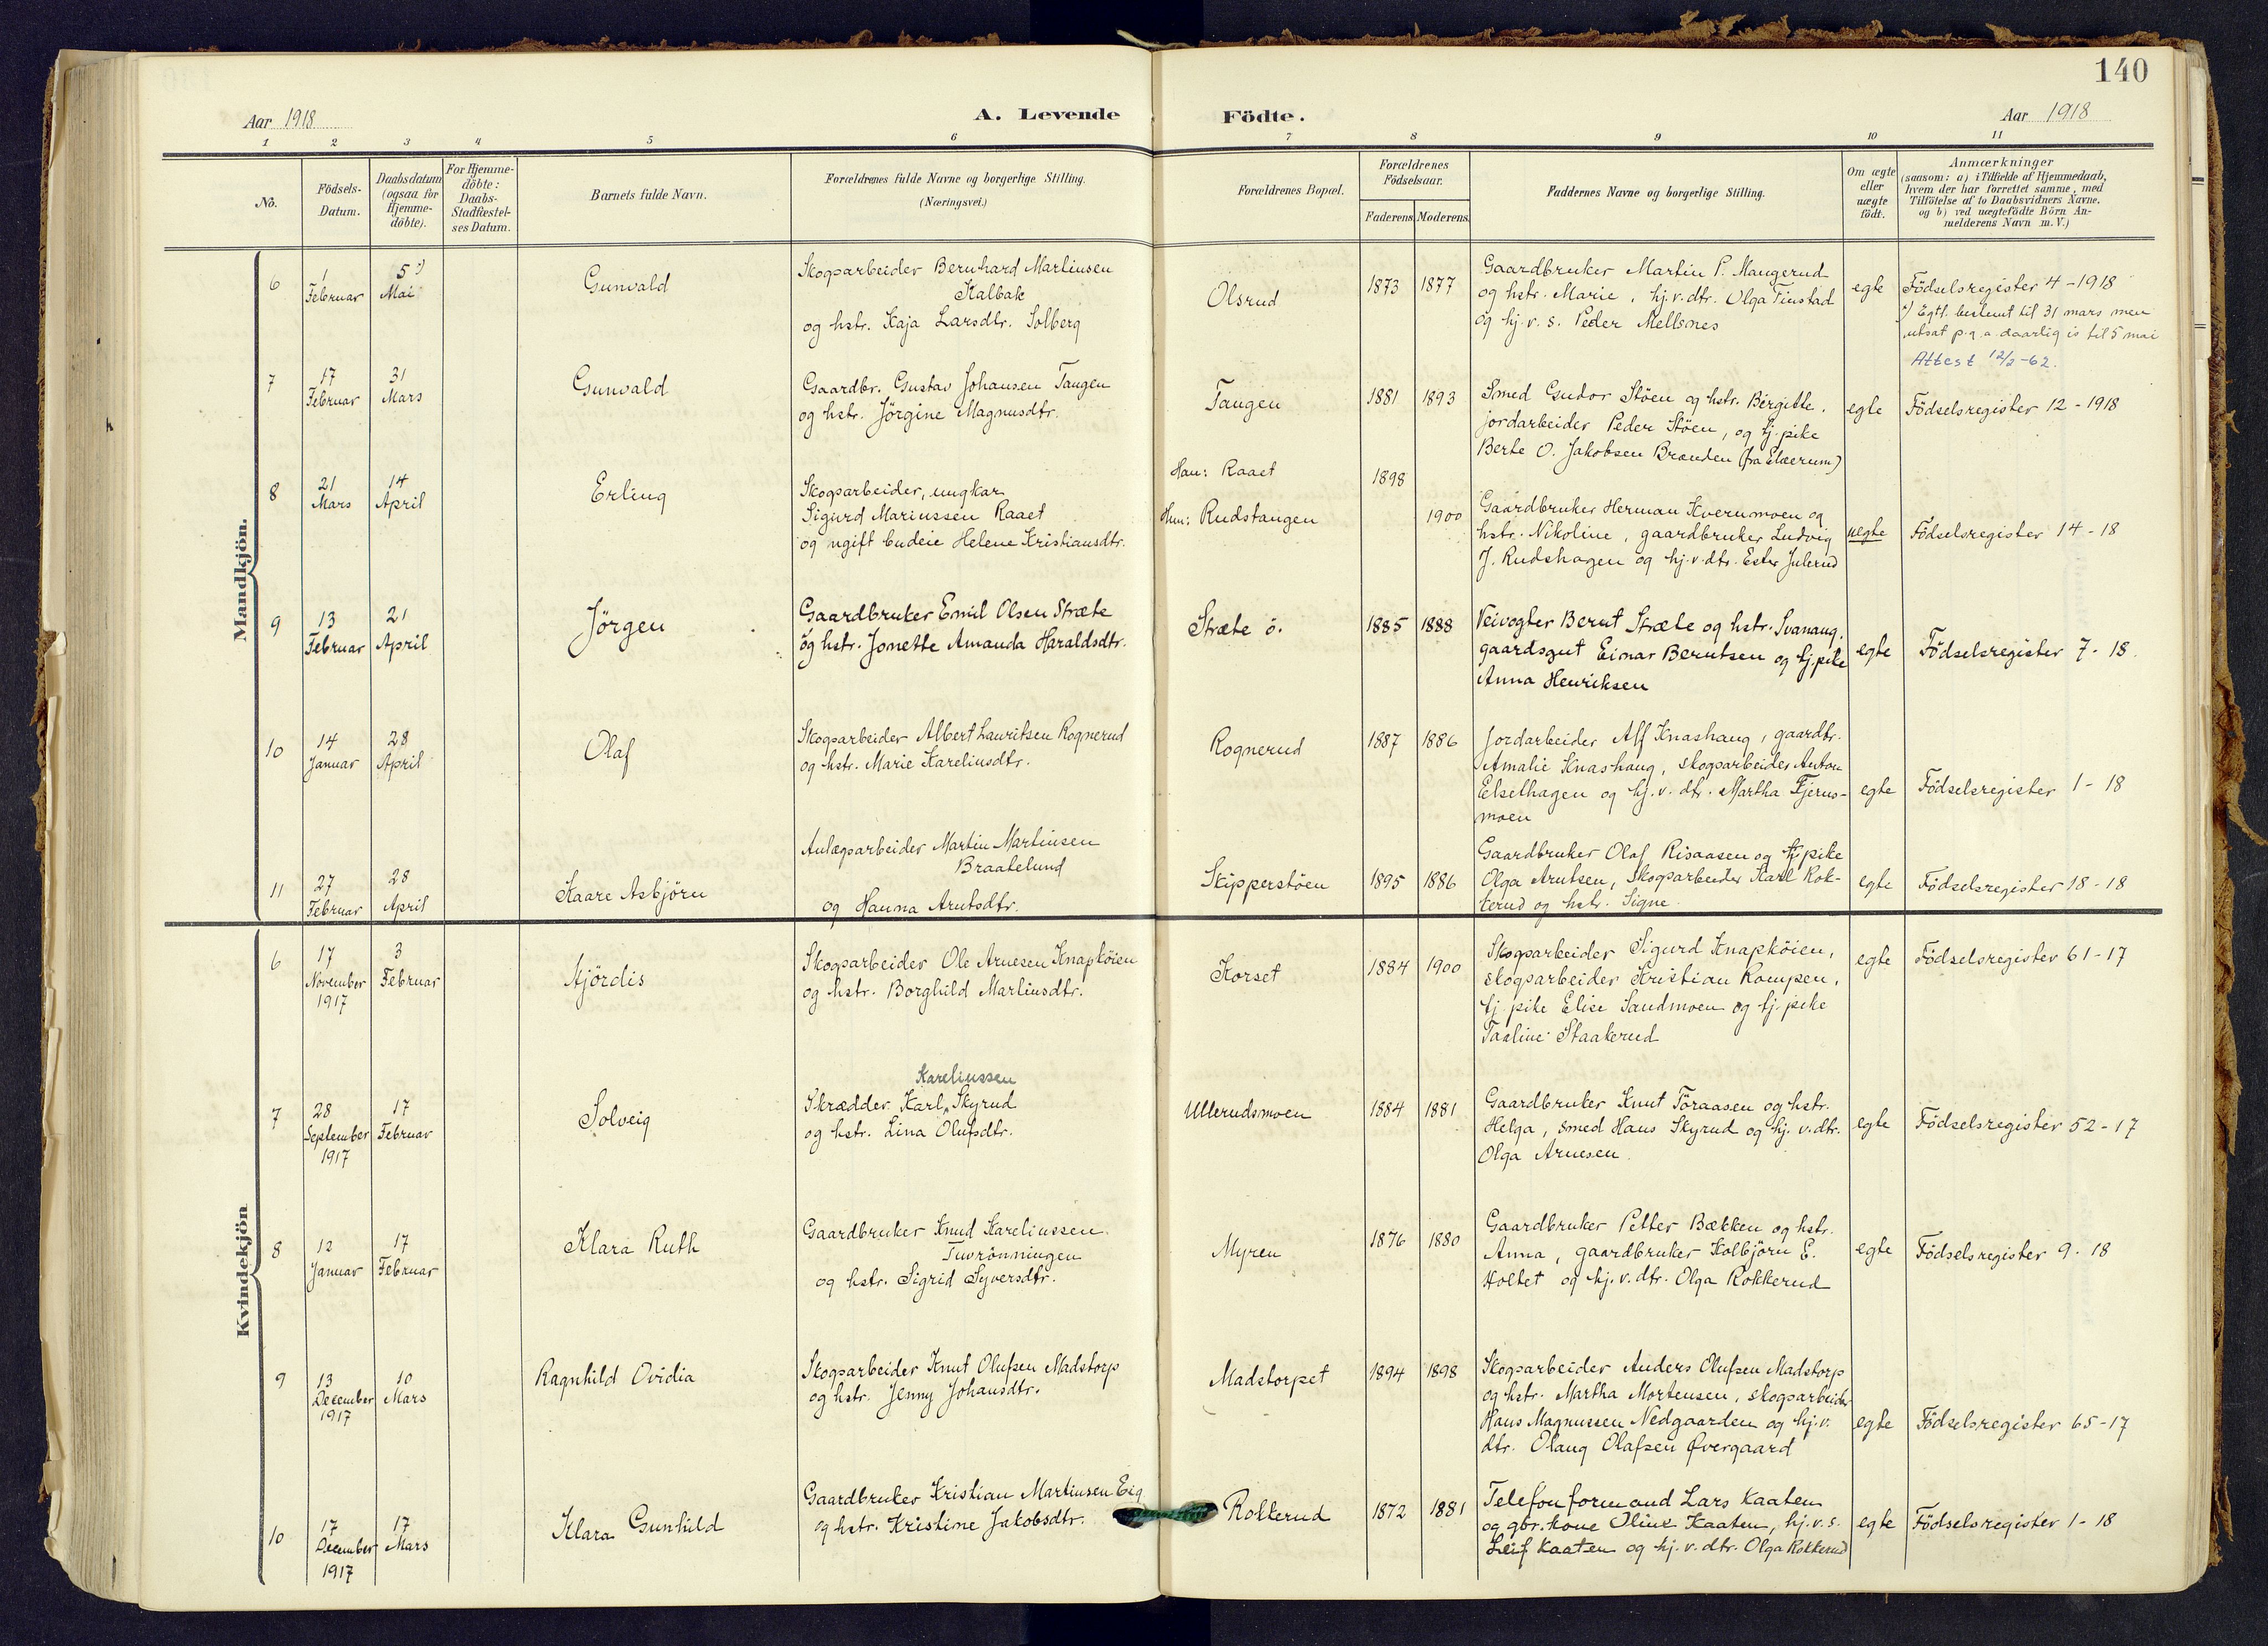 140
Aar 1918
A. Levende Födte.
Aar 1918
1 2 3 4 5 6 7 8 9 10 11
No.
Födsels-
Datum.
Daabsdatum
(ogsaa for
Hjemme-
döbte).
For Hjemme-
döbte:
Daabs-
Stadfæstel-
ses Datum.
Barnets fulde Navn.
Forældrenes fulde Navne og borgerlige Stilling.
(Næringsvei.)
Forældrenes Bopæl.
Forældrenes
Födselsaar.
Faderens. Moderens.
Faddernes Navne og borgerlige Stilling.
Om ægte
eller
uægte
födt.
Anmærkninger
(saasom: a) i Tilfælde af Hjemmedaab,
hvem der har forrettet samme, med
Tilföielse af to Daabsvidners Navne,
og b) ved uægtefödte Börn An-
melderens Navn m. V.)
Mandkjön.
6
1
Februar
5 *)
Mai
Gunvald
Skogsarbeider Bernhard Martinsen
Kalbak
og hstr. Kaja Larsdtr. Solberg
Olsrud
1873 1877
Gaardbruker Martin P. Maugerud
og hstr. Marie, hj.v.dtr. Olga Finstad
og hj.v.s. Peder Mellsnes
egte
Födselsregister 4-1918
*) Egtl. bestemt til 31 mars men
utsat p.g.a. daarlig is til 5 mai
Attest 12/2-62.
7
17
Februar
31
Mars
Gunvald
Gaardbr. Gustav Johansen Tangen
og hstr. Jörgine Magnusdtr.
Tangen
1881 1893
Smed Gudor Stöen og hstr. Bergitte,
jordarbeider Peder Stöen, og tj.pike
Berte O. Jakobsen Branden (fra Elverum)
egte
Födselsregister 12-1918
8
21
Mars
14
April
Erling
Skogsarbeider, ungkar
Sigurd Mariussen Raaet
og ugift budeie Helene Kristiansdtr.
Han: Raaet
Hun: Rudstangen
1898
1900
Gaardbruker Herman Kvernmoen og
hstr. Nikoline, gaardbruker Ludvig
J. Rudshagen og hj.v.dtr. Ester Julerud
uegte
Födselsregister 14-18
9
13
Februar
21
April
Jörgen
Gaardbruker Emil Olsen Stræte
og hstr. Jonette Amanda Haraldsdtr.
Stræte ö.
1885 1888
Veivogter Bernt Stræte og hstr. Svanaug,
gaardsgut Einar Berntsen og tj.pike
Anna Henriksen
egte
Födselsregister 7-18.
10
14
Januar
28
April
Olaf
Skogsarbeider Albert Lauritsen Rognerud
og hstr. Marie Kareliusdtr.
Rognerud
1887 1886
Jordarbeider Alf Knashaug, gaardbr.
Amalie Knashaug, skogsarbeider Anton
Eelsethagen og hj.v.dtr. Martha Tjerns-
moen
egte
Födselsregister 1-18
11
27
Februar
28
April
Kaare Asbjörn
Anlægsarbeider Martin Martinsen
Braatelund
og Hanna Arntsdtr.
Skipperstöen
1895 1886
Gaardbruker Olaf Risaasen og tj.pike
Olga Arntsen, Skogsarbeider Karl Rok-
kerud og hstr. Signe.
egte
Födselsregister 18-18
Kvindekjön
6
17
November
1917
3
Februar
Hjördis
Skogsarbeider Ole Arnesen Knapköien
og hstr. Borghild Martinsdtr.
Korset
1884 1900
Skogsarbeider Sigurd Knapköien,
skogsarbeider Kristian Rompen,
tj.pike Elise Sandmoen og tj.pike
Taaline Staakerud
egte
Födselsregister 61-17
7
28
September
1917
17
Februar
Solveig
Kareliussen
Skrædder Karl Skyrud
og hstr. Lina Olufsdtr.
Ullerudsmoen
1884 1881
Gaardbruker Knut Töraasen og hstr.
Helga, smed Hans Skyrud og hj.v.dtr.
Olga Arnesen.
egte
Födselsregister 52-17
8
12
Januar
17
Februar
Klara Ruth
Gaardbruker Knud Kareliussen
Tuvrönningen
og hstr. Sigrid Syversdtr.
Myren
1876 1880
Gaardbruker Petter Bækken og hstr.
Anna, gaardbruker Kolbjörn E.
Holtet og hj.v.dtr. Olga Rokkerud
egte
Födselsregister 9-18
9
13
December
1917
10
Mars
Ragnhild Ovidia
Skogsarbeider Knut Olufsen Madstorp
og hstr. Jenny Johansdtr.
Madstorpet
1894 1898
Skogsarbeider Anders Olufsen Madstorp
og hstr. Martha Mortensen, skogsarbeider
Hans Magnussen Nedgaarden og hj.v.
dtr. Olaug Olafsen Øvergaard
egte
Födselsregister 65-17
10
17
December
1917
17
Mars
Klara Gunhild
Gaardbruker Kristian Martinsen Eig
og hstr. Kristine Jakobsdtr.
Rokkerud
1872 1881
Telefonformand Lars Kaaten
og gbr.kone Oline Kaaten, hj.v.s.
Leif Kaaten og hj.v.dtr. Olga Rokkerud
egte
Födselsregister 1-18